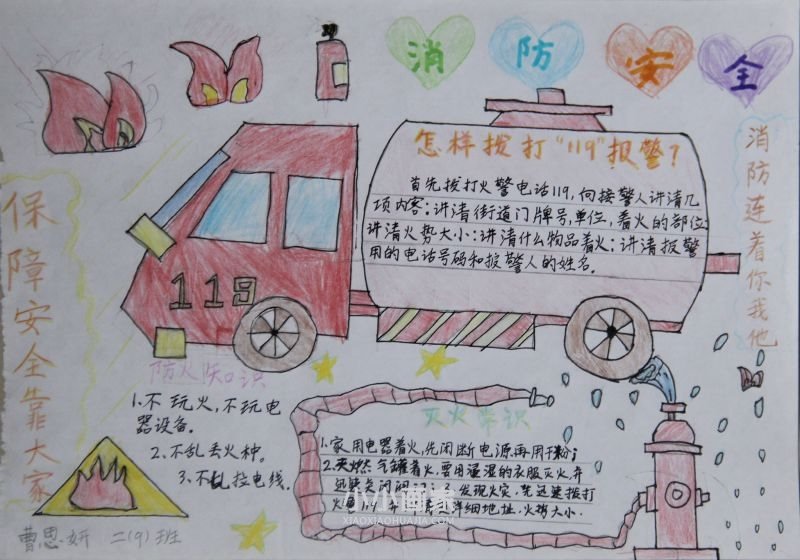 消防安全
怎样拨打“119”报警？
首先拨打火警电话119，向接警人讲清几
项内容：讲清街道门牌号单位，着火的部位
讲清火势大小：讲清什么物品着火：讲清报警
用的电话号码和报警人的姓名。
消防连着你我他
保障安全靠大家
119
防火知识
1、不玩火，不玩电
器设备。
2、不乱丢火种。
3、不乱拉电线。
灭火常识
1、家用电器着火，先闭断电源再用干粉；
2、灭燃气罐着火，要用湿的衣服灭火，并
迅速关闭阀门；3、发现火灾，先迅速拨打
火警119，详细地址，火势大小。
小小画客
XIAOXIAOHUAJIA.COM
曹思妍 二(9)班